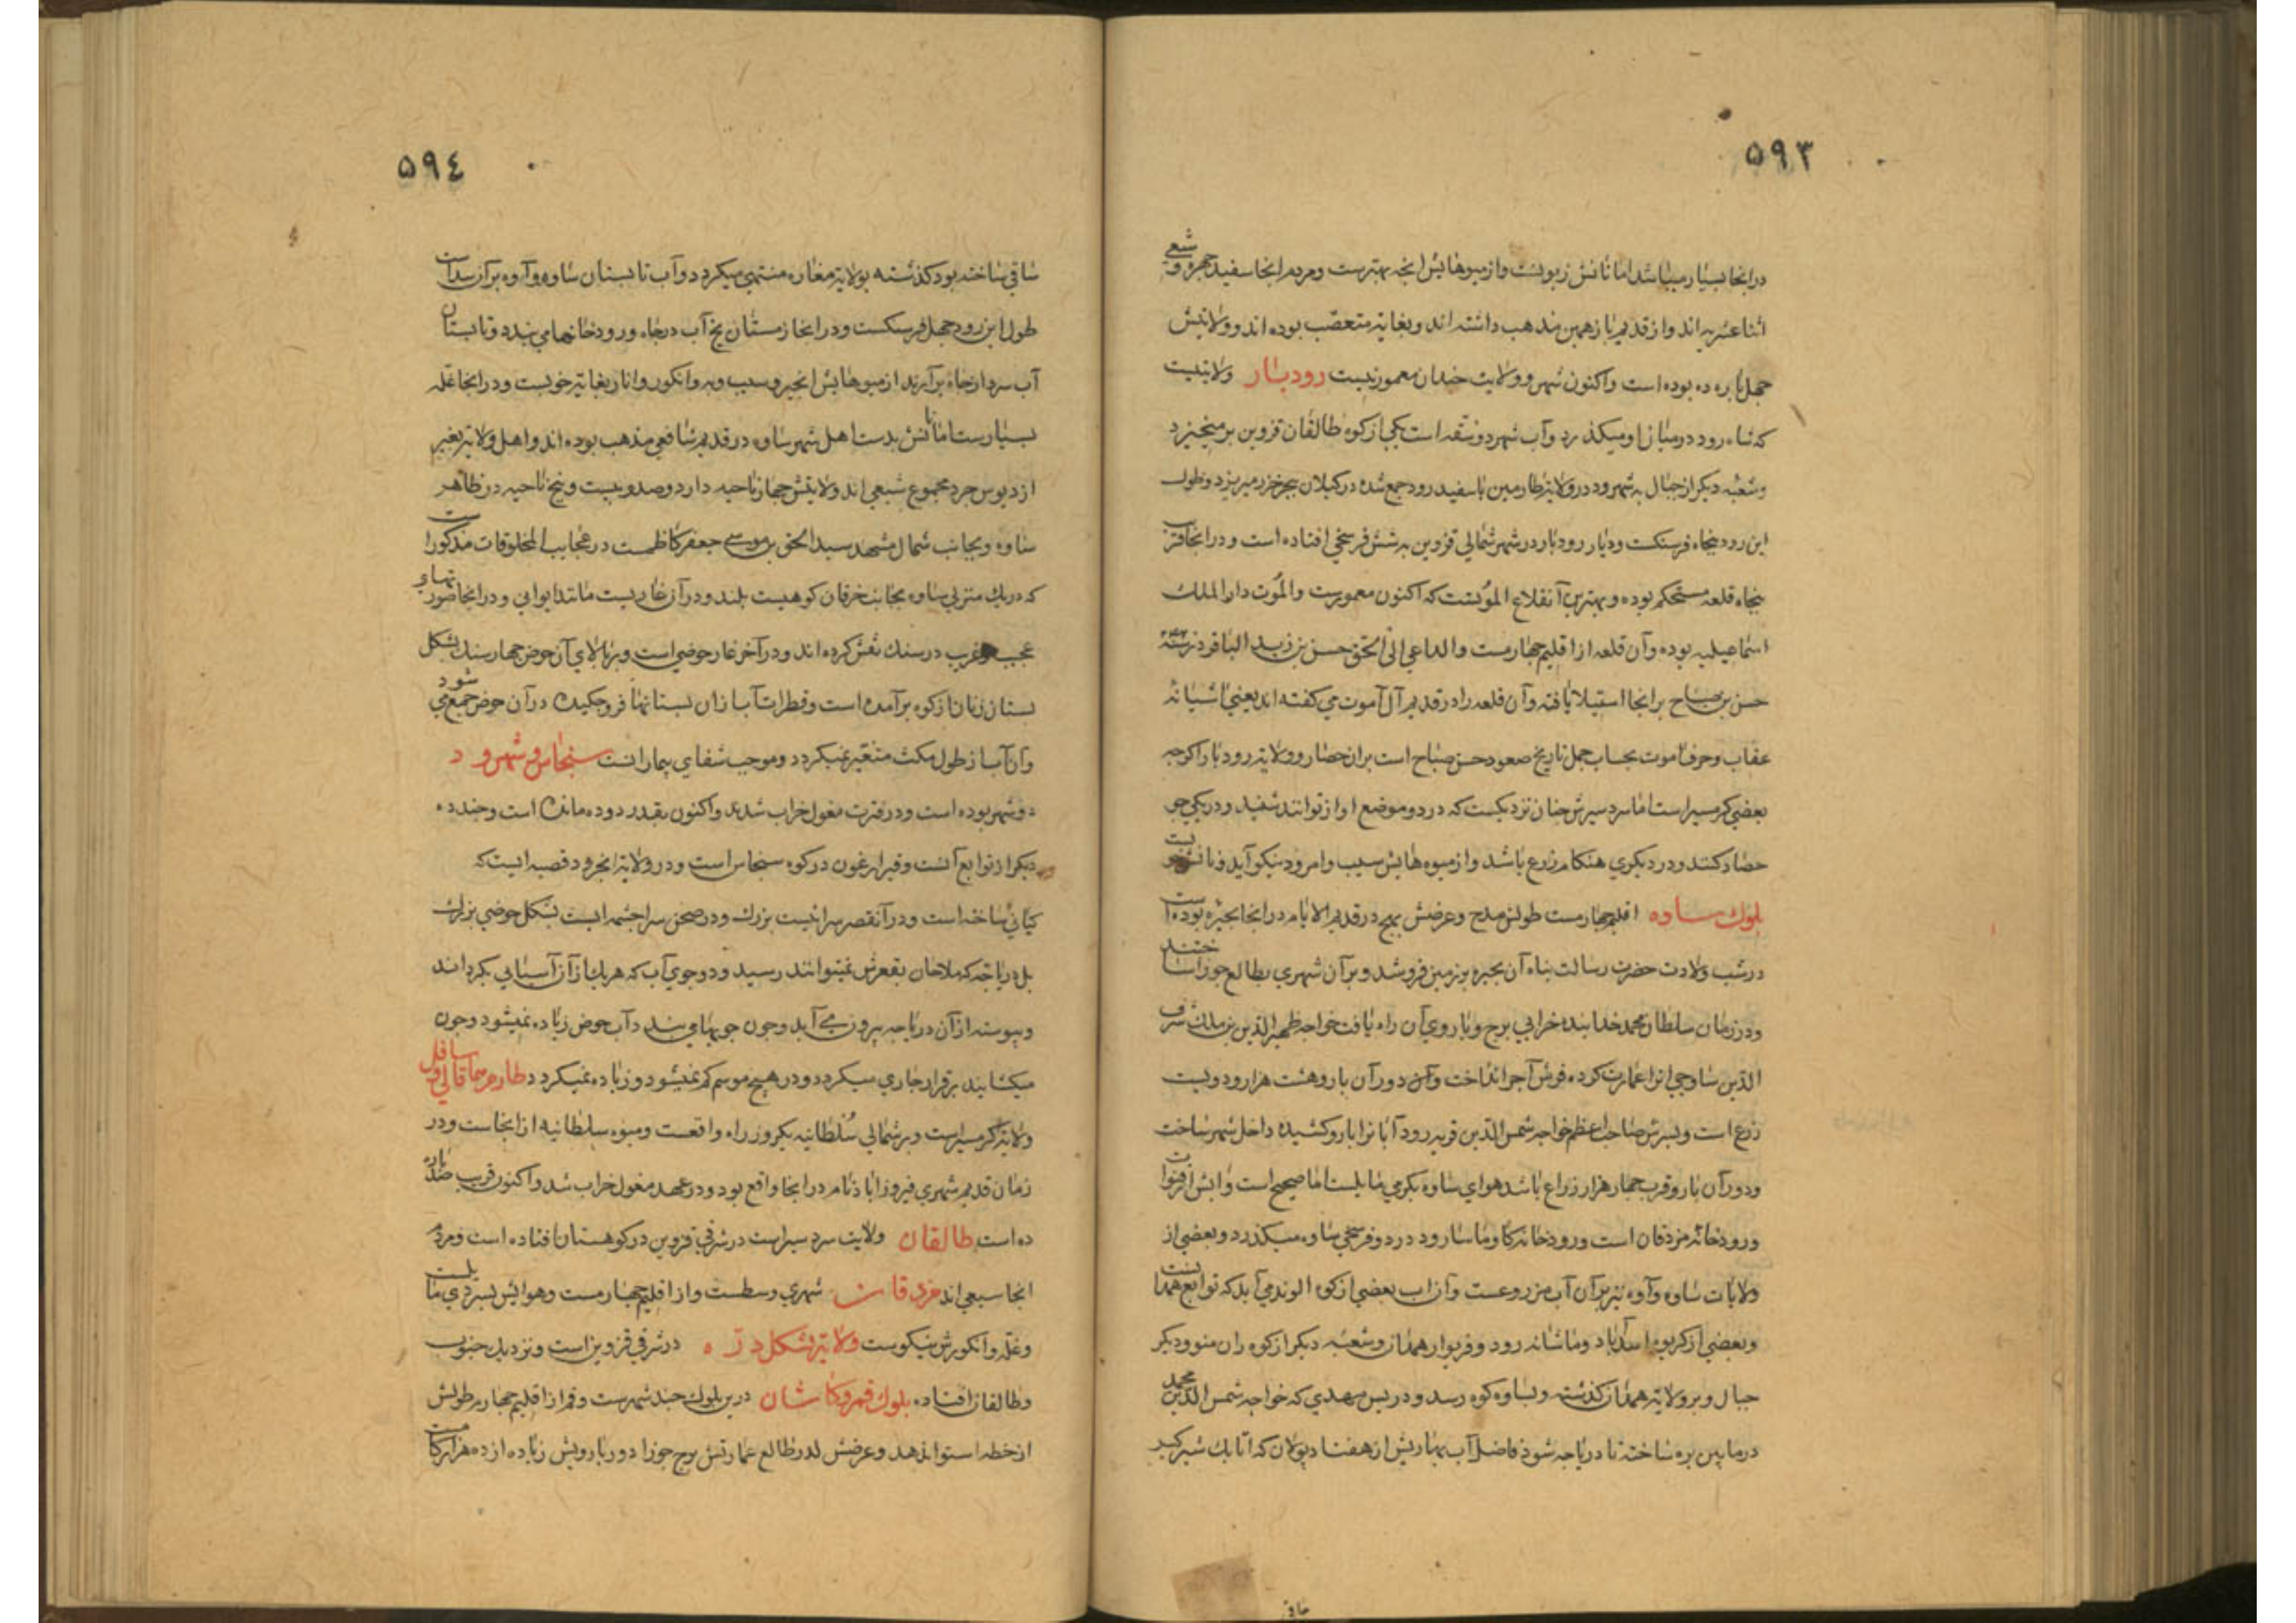 ۵۹۳
در انجا بسیار میباشد اما نانش زبونست و از میوهایش انجه بهترست و مردم انجا سفید چهره و شیعی
اثنا عشریه اند و از قدیم باز همین مذهب داشته اند و بغایة متعصّب بوده اند و ولایتش
چهل پاره ده بوده است و اکنون شهر و ولایت چندان معمور نیست رودبار ولایتیست
که شاه رود در میان او میکذرد و آب شهرود شقه است یکی از کوه طالقان قزوین برمیخیزد
و شعبه دیکر از جبال به شهرود در ولایة طارمین با سفیدرود جمع شده در کیلان ببحر خزر میریزد و طول
این رود پنجاه فرسنکست و دیار رودبار در شهر شمالی قزوین به شش فرسخی افتاده است و در انجا قرب
پنجاه قلعه مستحکم بوده و بهترین آنقلاع الموتست که اکنون معمورست و الموت دار الملک
اسماعیلیه بوده و آن قلعه از اقلیم چهارمست و الداعی الی الحق حسن بن زید الباقر در سنه
حسن بن صباح بر انجا استیلا یافته و آن قلعه را در قدیم آل آموت می کفته اند یعنی اشیانه
عقاب و حروف الموت بحساب جمل تاریخ صعود حسن صباح است بران حصار و ولایة رودبار اکرچه
بعضی کرمسیر است اما سردسیرش چنان نزدیکست که در دو موضع اواز توانند شنید و در یکی جو
حصاد کنند و در دیکری هنکام زرع باشد و از میوه هایش سیب و امرود نیکو آید و نانش خوبست
بلوک ساوه اقلیم چهارمست طولش مدح و عرضش بهج در قدیم الایام در انجا بحیره بوده است
در شب ولادت حضرت رسالت پناه آن بحیره بزمین فروشد و بر آن شهری بطالع جوزا ساختند
و در زمان سلطان محمد خدابنده خرابی برج و باروی آن راه یافت خواجه ظهیر الدین بن ملک شرف
الدین ساوجی انرا عمارت کرده فرش آجر انداخت و اکنون دور آن بارو هشت هزار و دویست
ذرع است و پسرش صاحب اعظم خواجه شمس الدین قریه رود آبانرا بارو کشیده داخل شهر ساخت
و دور آن بارو قرب چهار هزار زراع باشد هوای ساوه بکرمی مایلست اما صحیح است و ابش از قنوات
و رودخانه مزدقان است و رودخانه کاوماسا رود در دو فرسخی ساوه میکذرد و بعضی از
ولایات ساوه و آوه نیز بر آن آب مزروعست و آن اب بعضی از کوه الوند می آید که توابع همدانست
و بعضی از کریوه اسدآباد و ماشانه رود و فریوار همدان و شعبه دیکر از کوه ران منو و دیکر
جبال و بر ولایة همدان کذشته و بساوه کوه رسد و در پس سهدی که خواجه شمس الدین محمد
درمابین بره ساخته تا دریاجه شود فاضل آب بهاریش از هفتاد پولان که اتابک شیرکیر
ساقی
۵۹٤
ساقی ساخته بود کذشته بولایة مغاره منتهی میکردد و آب تابستان ساوه و آوه بر آن سداست
طول این رود چهل فرسنکست و در انجا زمستان یخ آب در چاه و رودخانها می بندد و تابستان
آب سرد از چاه برآرند از میوهایش انجیر و سیب و به و انکور و انار بغایة خوبست و در انجا غلّه
بسیارست اما نانش بدست اهل شهر ساوه در قدیم شافعی مذهب بوده اند و اهل ولایة بغیر
از دیوس جرد مجموع شیعی اند ولایتش چهار ناحیه دارد و صد و بیست و پنج ناحیه در ظاهر
ساوه و بجانب شمال مشهد سید اسحق بن موسی جعفر کاظمست در عجایب المخلوقات مذکور است
که در یک منزلی ساوه بجانب خرقان کوهیست بلند و در آن غاریست مانند ایوانی و در انجا صورتهاء
عجب و غریب در سنک نقش کرده اند و در آخر غار حوضی است و بر بالای آن حوض چهار سنک بشکل
پستان زنان از کوه برآمده است و قطرات آب از ان پستانها فرو چکیده در آن حوض جمع می شود
و آن آب از طول مکث متغیر نمیکردد و موجب شفای بیمارانست سنجاس و شهرود
دو شهر بوده است و در فترت مغول خراب شدند و اکنون بقدر دو ده مانده است و چند ده
دیکر از توابع آنست و قبر ارغون در کوه سنجاس است و در ولایة انجرود قصبه ایست که
کیانی ساخته است و در آنقصر سرائیست بزرک و در صحن سرا چشمه ایست بشکل حوضی بزرک
بل دریاچه که ملاحان بقعرش نمیتوانند رسید و دو جوی آب که هر یک از آن آسیایی بکرداند
و پیوسته از آن دریاجه بیرون می آید و چون جویها می بندد آب حوض زیاده نمیشود و چون
میکشایند برقرار جاری میکردد و در هیچ موسم کم نمیشود و زیاده نمیکردد طارم سافل
ولایة کرمسیر است و بر شمالی سلطانیه بیکروزه راه واقعست و میوه سلطانیه از انجاست و در
زمان قدیم شهری فیروزاباذ نام در انجا واقع بود و در عهد مغول خراب شد و اکنون قریب صد پاره
ده است طالقان ولایت سردسیر است در شرقی قزوین در کوهستان افتاده است و مردم
انجا سیعی اند خرقان شهری وسطست و از اقلیم چهارمست و هوایش بسردی مایلست
و غلّه و انکورش نیکوست ولایة پشکل دره در شرقی قزوین است و نزدیک جنوب
و طالقان افتاده بلوک قم و کاشان درین بلوک چند شهرست و قم از اقلیم چهارم طولش
از خطه استوا لد هد و عرضش لدر طالع عمارتش برج جوزا دور بارویش زیاده از ده هزار کامست